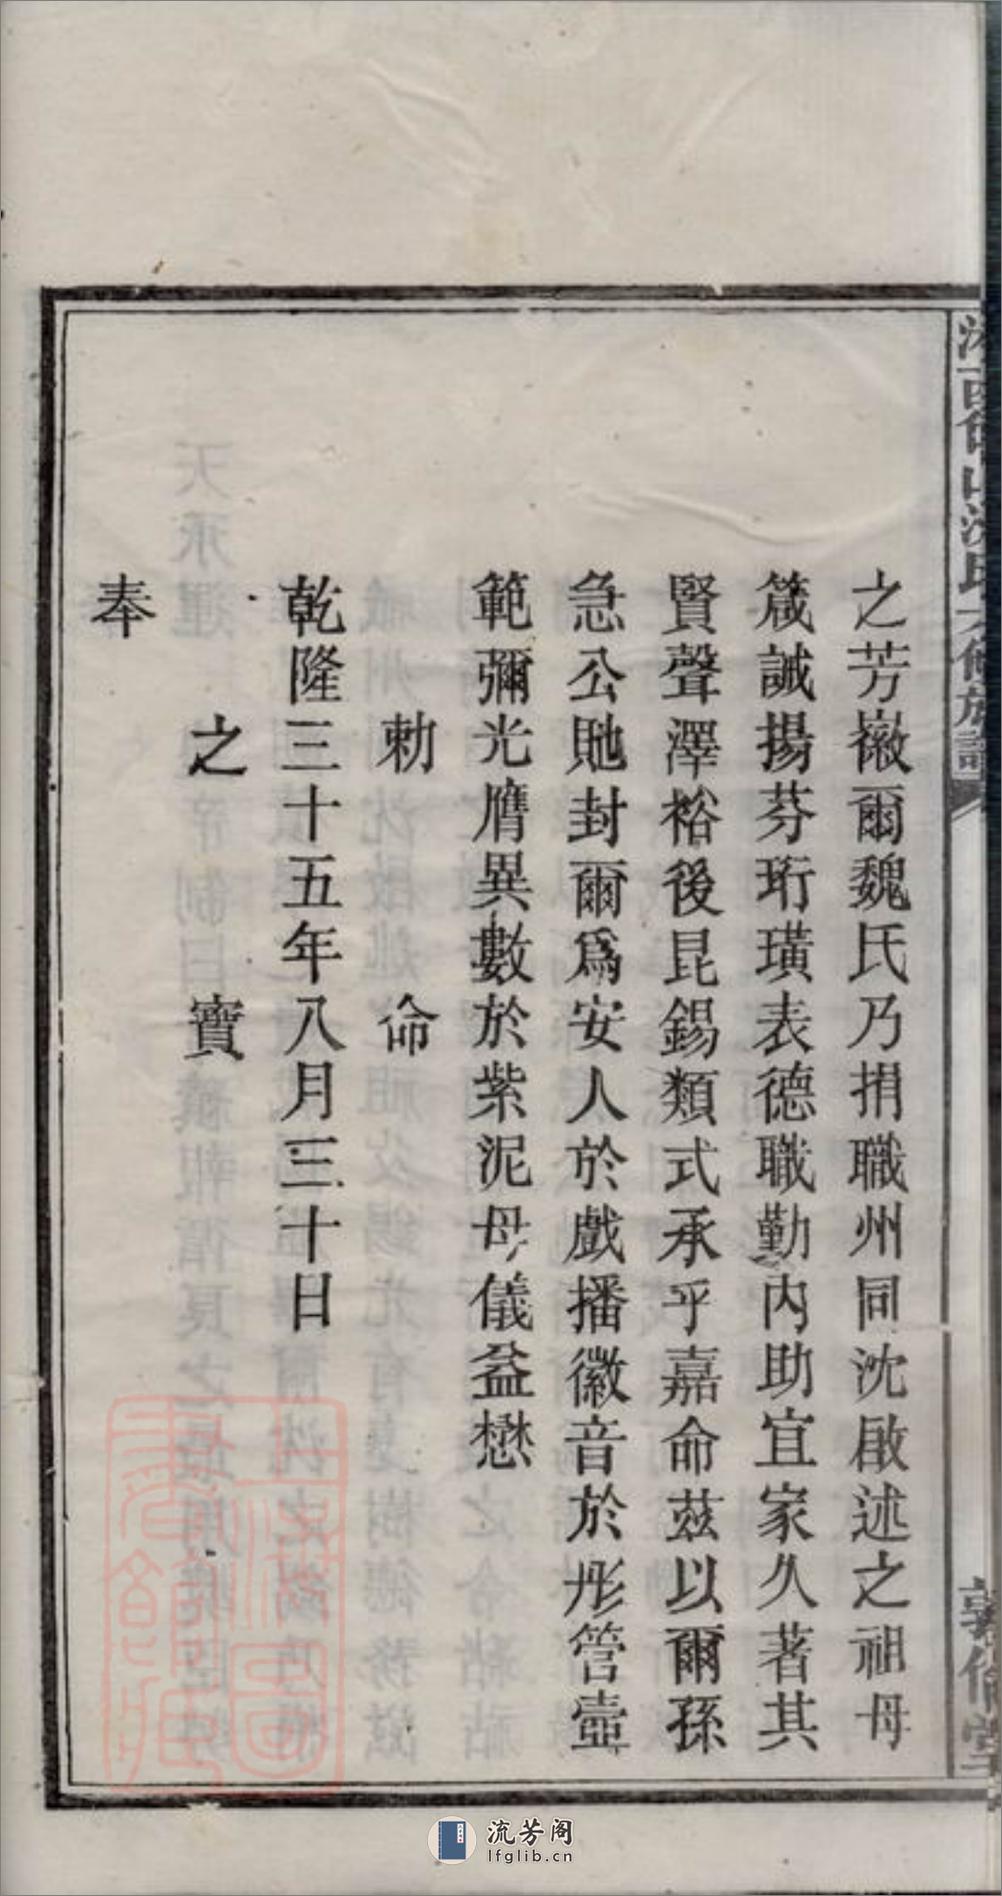 之芳嶶爾魏氏乃捐職州同沈啟述之祖母
箴誠揚芬珩璜表德職勤內助宜家久著其
賢聲澤裕後昆錫類式承乎嘉命茲以爾孫
急公貤封爾爲安人於戲播徽音於彤管壼
範彌光膺異數於紫泥母儀益懋
勅命
乾隆三十五年八月三十日
之寶
奉
敦倫堂
流芳阁
lfglib.cn